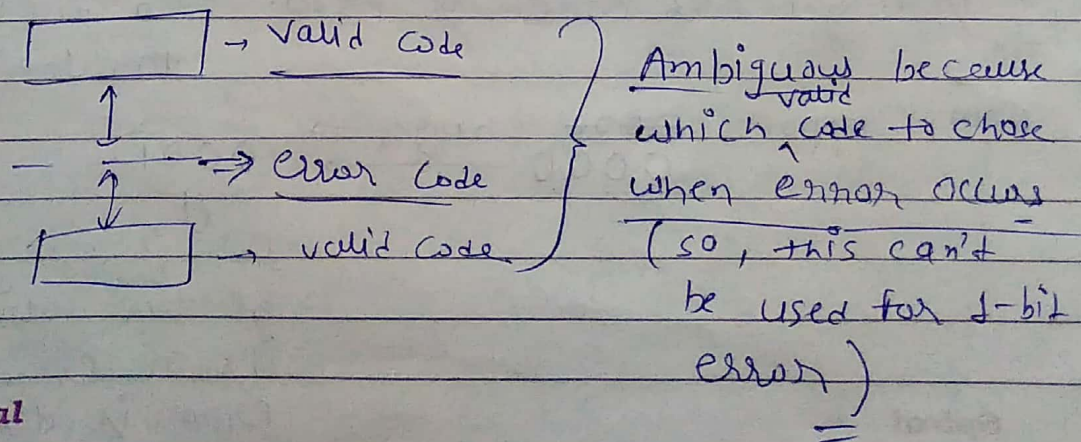 → valid code
→ error code
→ valid code
Ambiguous because
which valid code to chose
when error occurs
(so, this can't
be used for 1-bit
error)
al